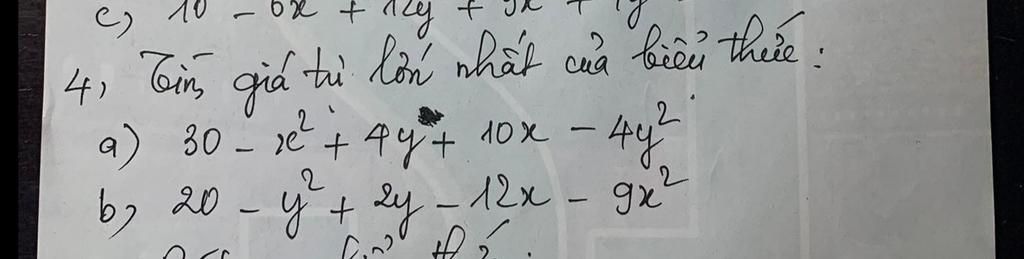 c, 10 - 6x + 12y + 9x +
4, Tìm giá trị lớn nhất của biểu thức :
a) 30 - x² + 4y + 10x - 4y²
b, 20 - y² + 2y - 12x - 9x²